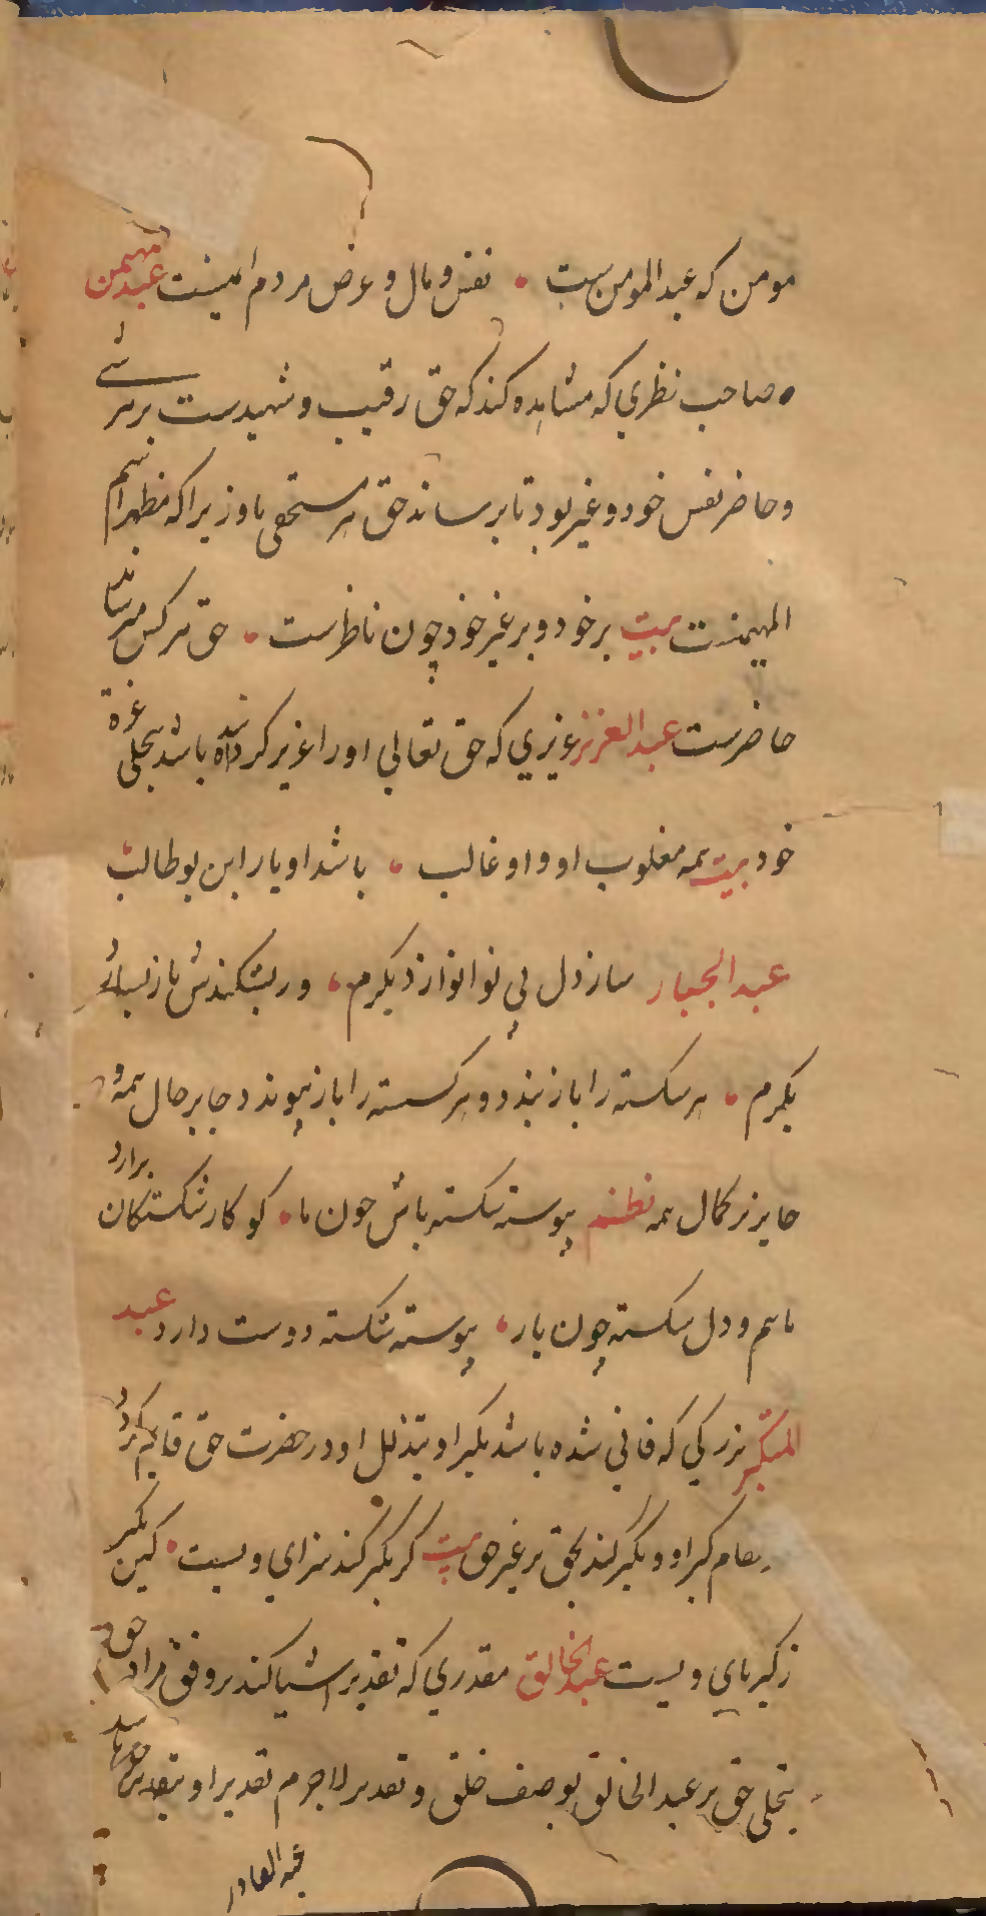 مومن که عبد المومن ست • نفس و مال و عرض مردم امینست عبد مهیمن
• صاحب نظري که مشاهده کند که حق رقیب و شهیدست بر هر شے
و حاضر نفس خود و غیر بود تا برساند حق هر مستحقی باو زیرا که مظهر اسم
المهیمنست بیت بر خود و بر غیر خود چون ناظرست • حق هر کس میرساند
حاضرست عبد العزیز عزیزي که حق تعالي او را عزیز کردانیده باشد بتجلی عزة
خود بیت همه مغلوب او و او غالب • باشد او یار ابن بو طالب
عبد الجبار ساز دل بي نوا نوازد بکرم • ور بشکندش باز بسازد
بکرم • هر شکسته را باز بندد و هر کسسته را باز پیوندد جابر حال همه و
حایز بر کمال همه نظم پیوسته شکسته باش چون ما • کو کار شکستکان برارد
ماییم و دل شکسته چون یار • پیوسته شکسته دوست دارد عبد
المتکبر بزرکي که فاني شده باشد تکبر او بتذلل او در حضرت حق قایم کردد
بمقام کبر او و تکبر کند بحق بر غیر حق بیت کر تکبر کند سزاي ویست • کین تکبر
ز کبریاي ویست عبد الخالق مقدري که تقدیر اشیا کند بر وفق مراد حق
بتجلی حق بر عبد الخالق بوصف خلق و تقدیر لاجرم تقدیر او بتقدیر حق باشد
عبد القادر